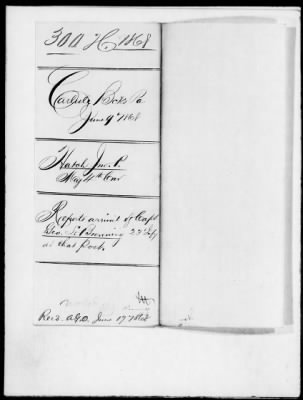 300 H. 1868
Carlisle Bcks Pa
June 9" 1868
Hatch Jno. P.
Maj 4th Cav
Reports arrival of Capt
Geo. 22d Infy
at that Post.
Rec'd. A.G.O. June 17 1868